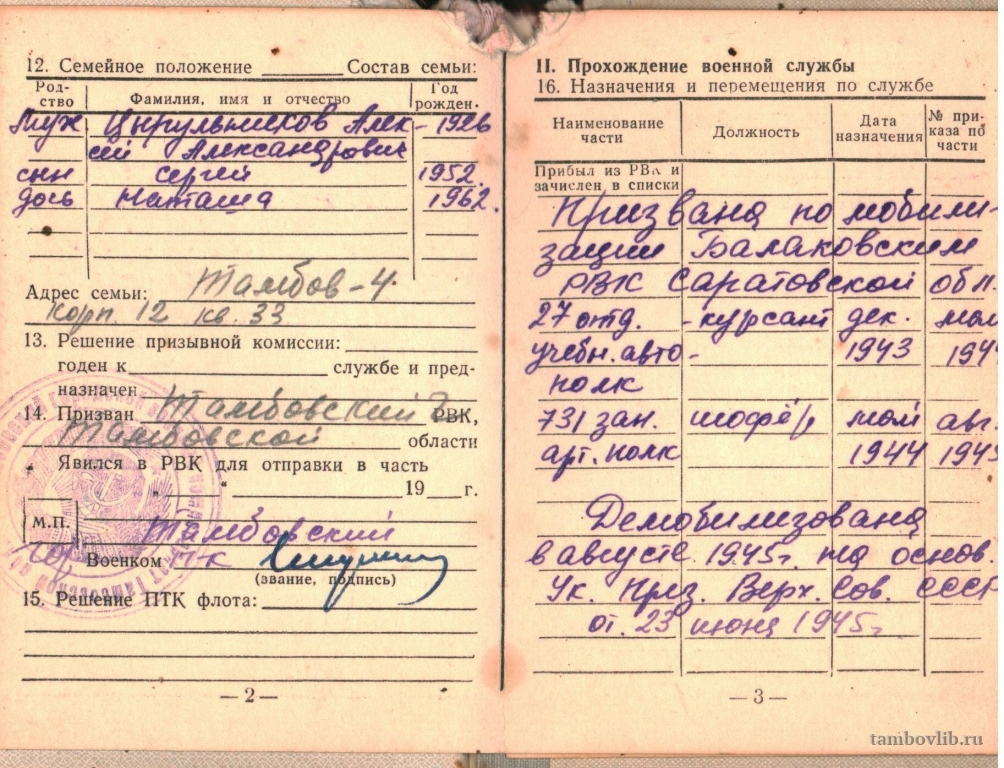 12. Семейное положение Состав семьи:
Род-
ство
Фамилия, имя и отчество
Год
рожден.
Муж Цырульников Алек- 1926
сей Александрович
сын Сергей 1952
дочь Наташа 1962.
Адрес семьи: Тамбов-4
корп. 12 кв. 33
13. Решение призывной комиссии:
годен к службе и пред-
назначен
14. Призван Тамбовский РВК,
Тамбовской области
Явился в РВК для отправки в часть
„ “ 19 г.
М.П. Тамбовский
Военком
(звание, подпись)
15. Решение ПТК флота:
—2—
II. Прохождение военной службы
16. Назначения и перемещения по службе
Наименование
части
Должность
Дата
назначения
№ при-
каза по
части
Прибыл из РВК и
зачислен в списки
Призвана по мобили-
зации Балаковским
РВК Саратовской обл.
27 отд. - курсант дек. май
учебн. авто- 1943 194
полк
731 зен. шофёр май авг.
арт. полк 1944 1945
Демобилизована
в августе 1945г. на основ.
Ук. През. Верх. Сов. СССР
от. 23 июня 1945г.
—3—
tambovlib.ru